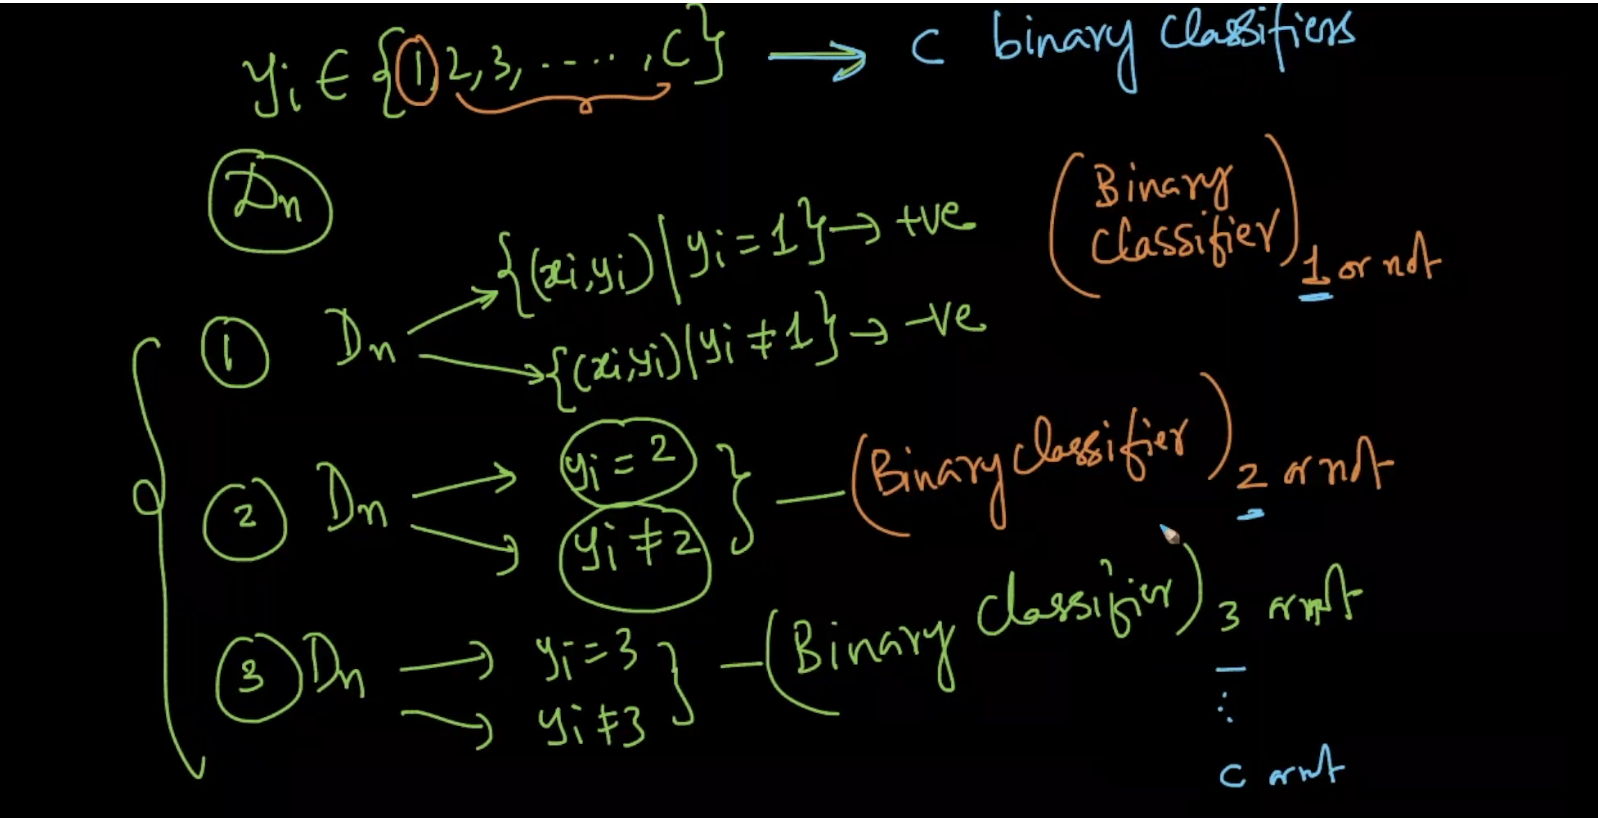 yi ∈ {1, 2, 3, ....., C} → C binary classifiers
Dn
{(xi,yi) | yi = 1} → +ve
(Binary Classifier) 1 or not
1 Dn
{(xi,yi) | yi ≠ 1} → -ve
2 Dn → yi = 2
→ yi ≠ 2 } — (Binary classifier) 2 or not
3 Dn → yi = 3
→ yi ≠ 3 } — (Binary Classifier) 3 or not
⋮
C or not